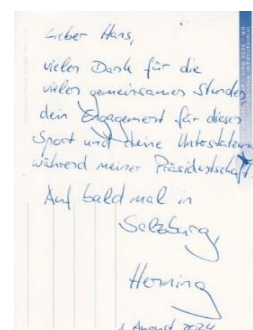 Lieber Hans,
vielen Dank für die
vielen gemeinsamen Stunden
dein Engagement für diesen
Sport und deine Unterstützung
während meiner Präsidentschaft
Auf bald mal in
Salzburg,
Henning
1. August 2024